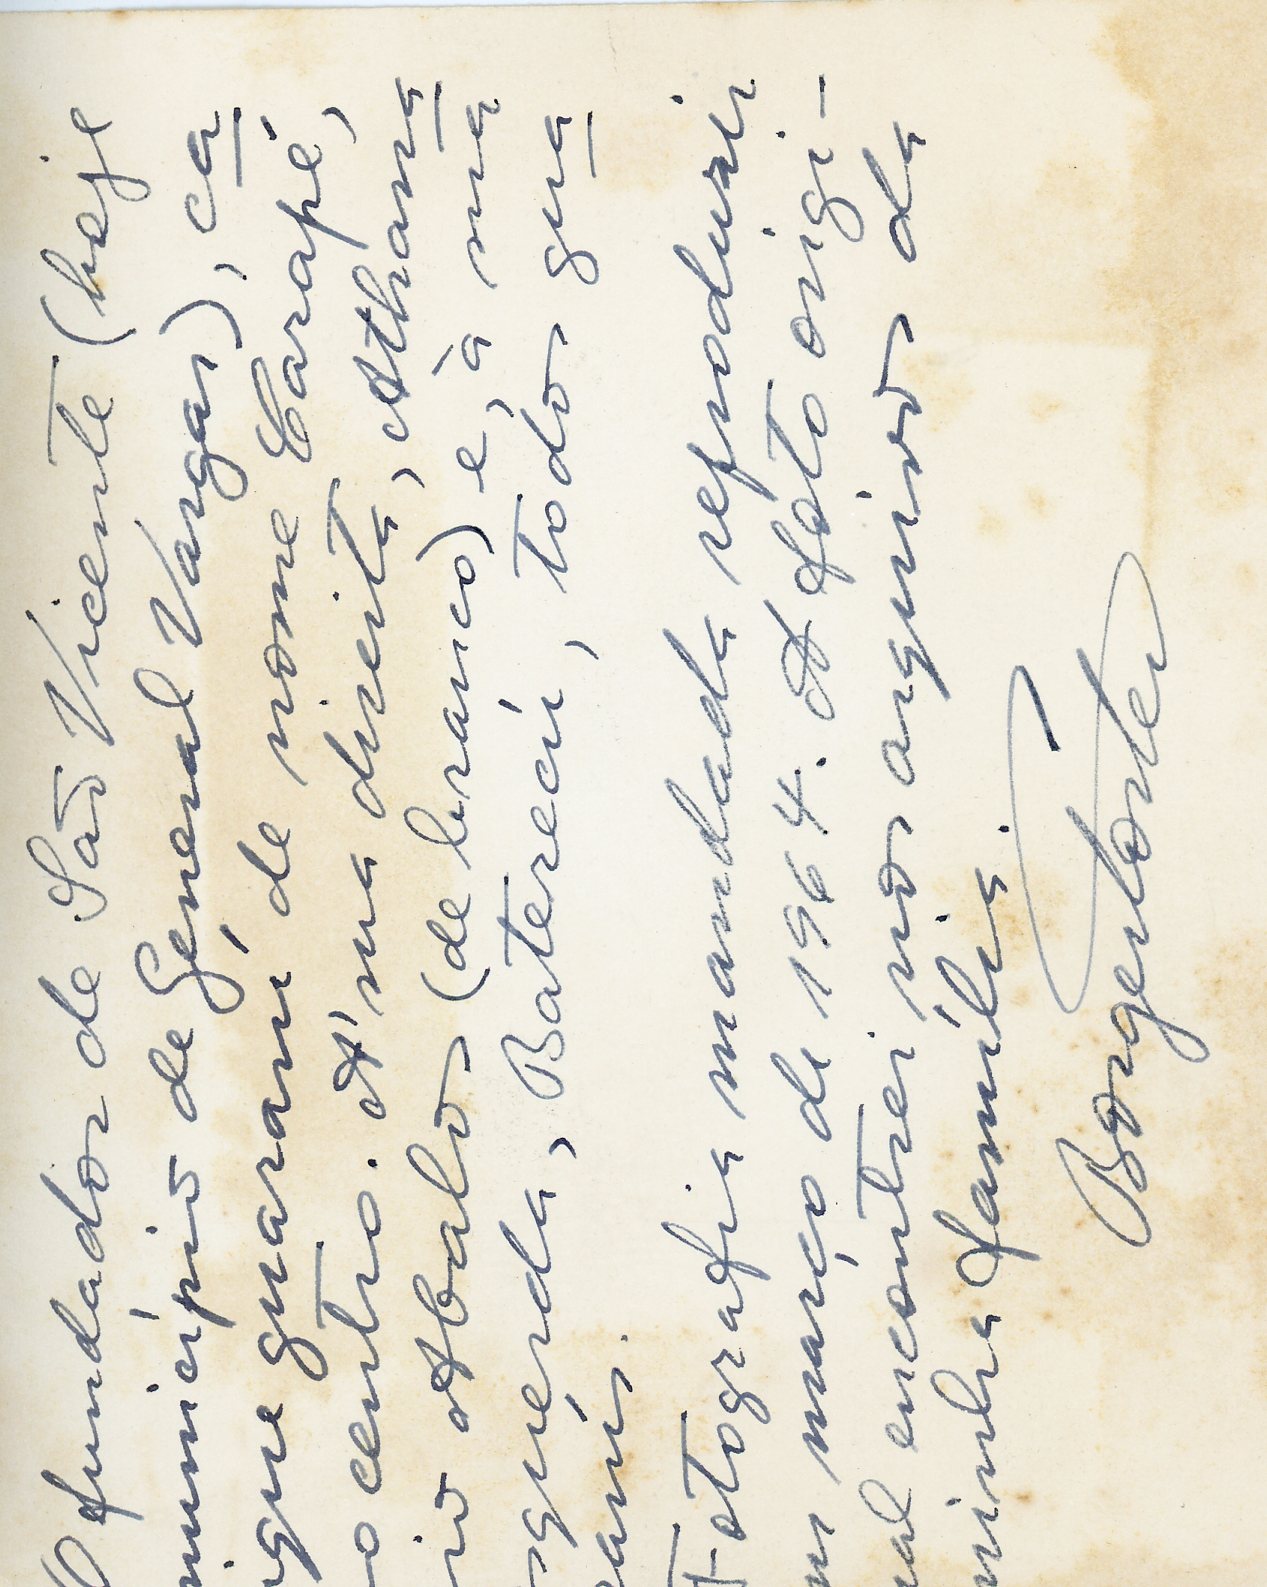 O fundador de São Vicente (hoje
município de General Vargas), ca
cique guarani de nome Carapé,
o centro. A' sua direita, Athana
sio Abalos (de branco) e, à sua
squerda, Baterecú, todos gua
ranis.
Fotografia mandada reproduzir
em março de 1964. A foto origi-
nal encontrei nos arquivos da
minha família.
Borges Fortes